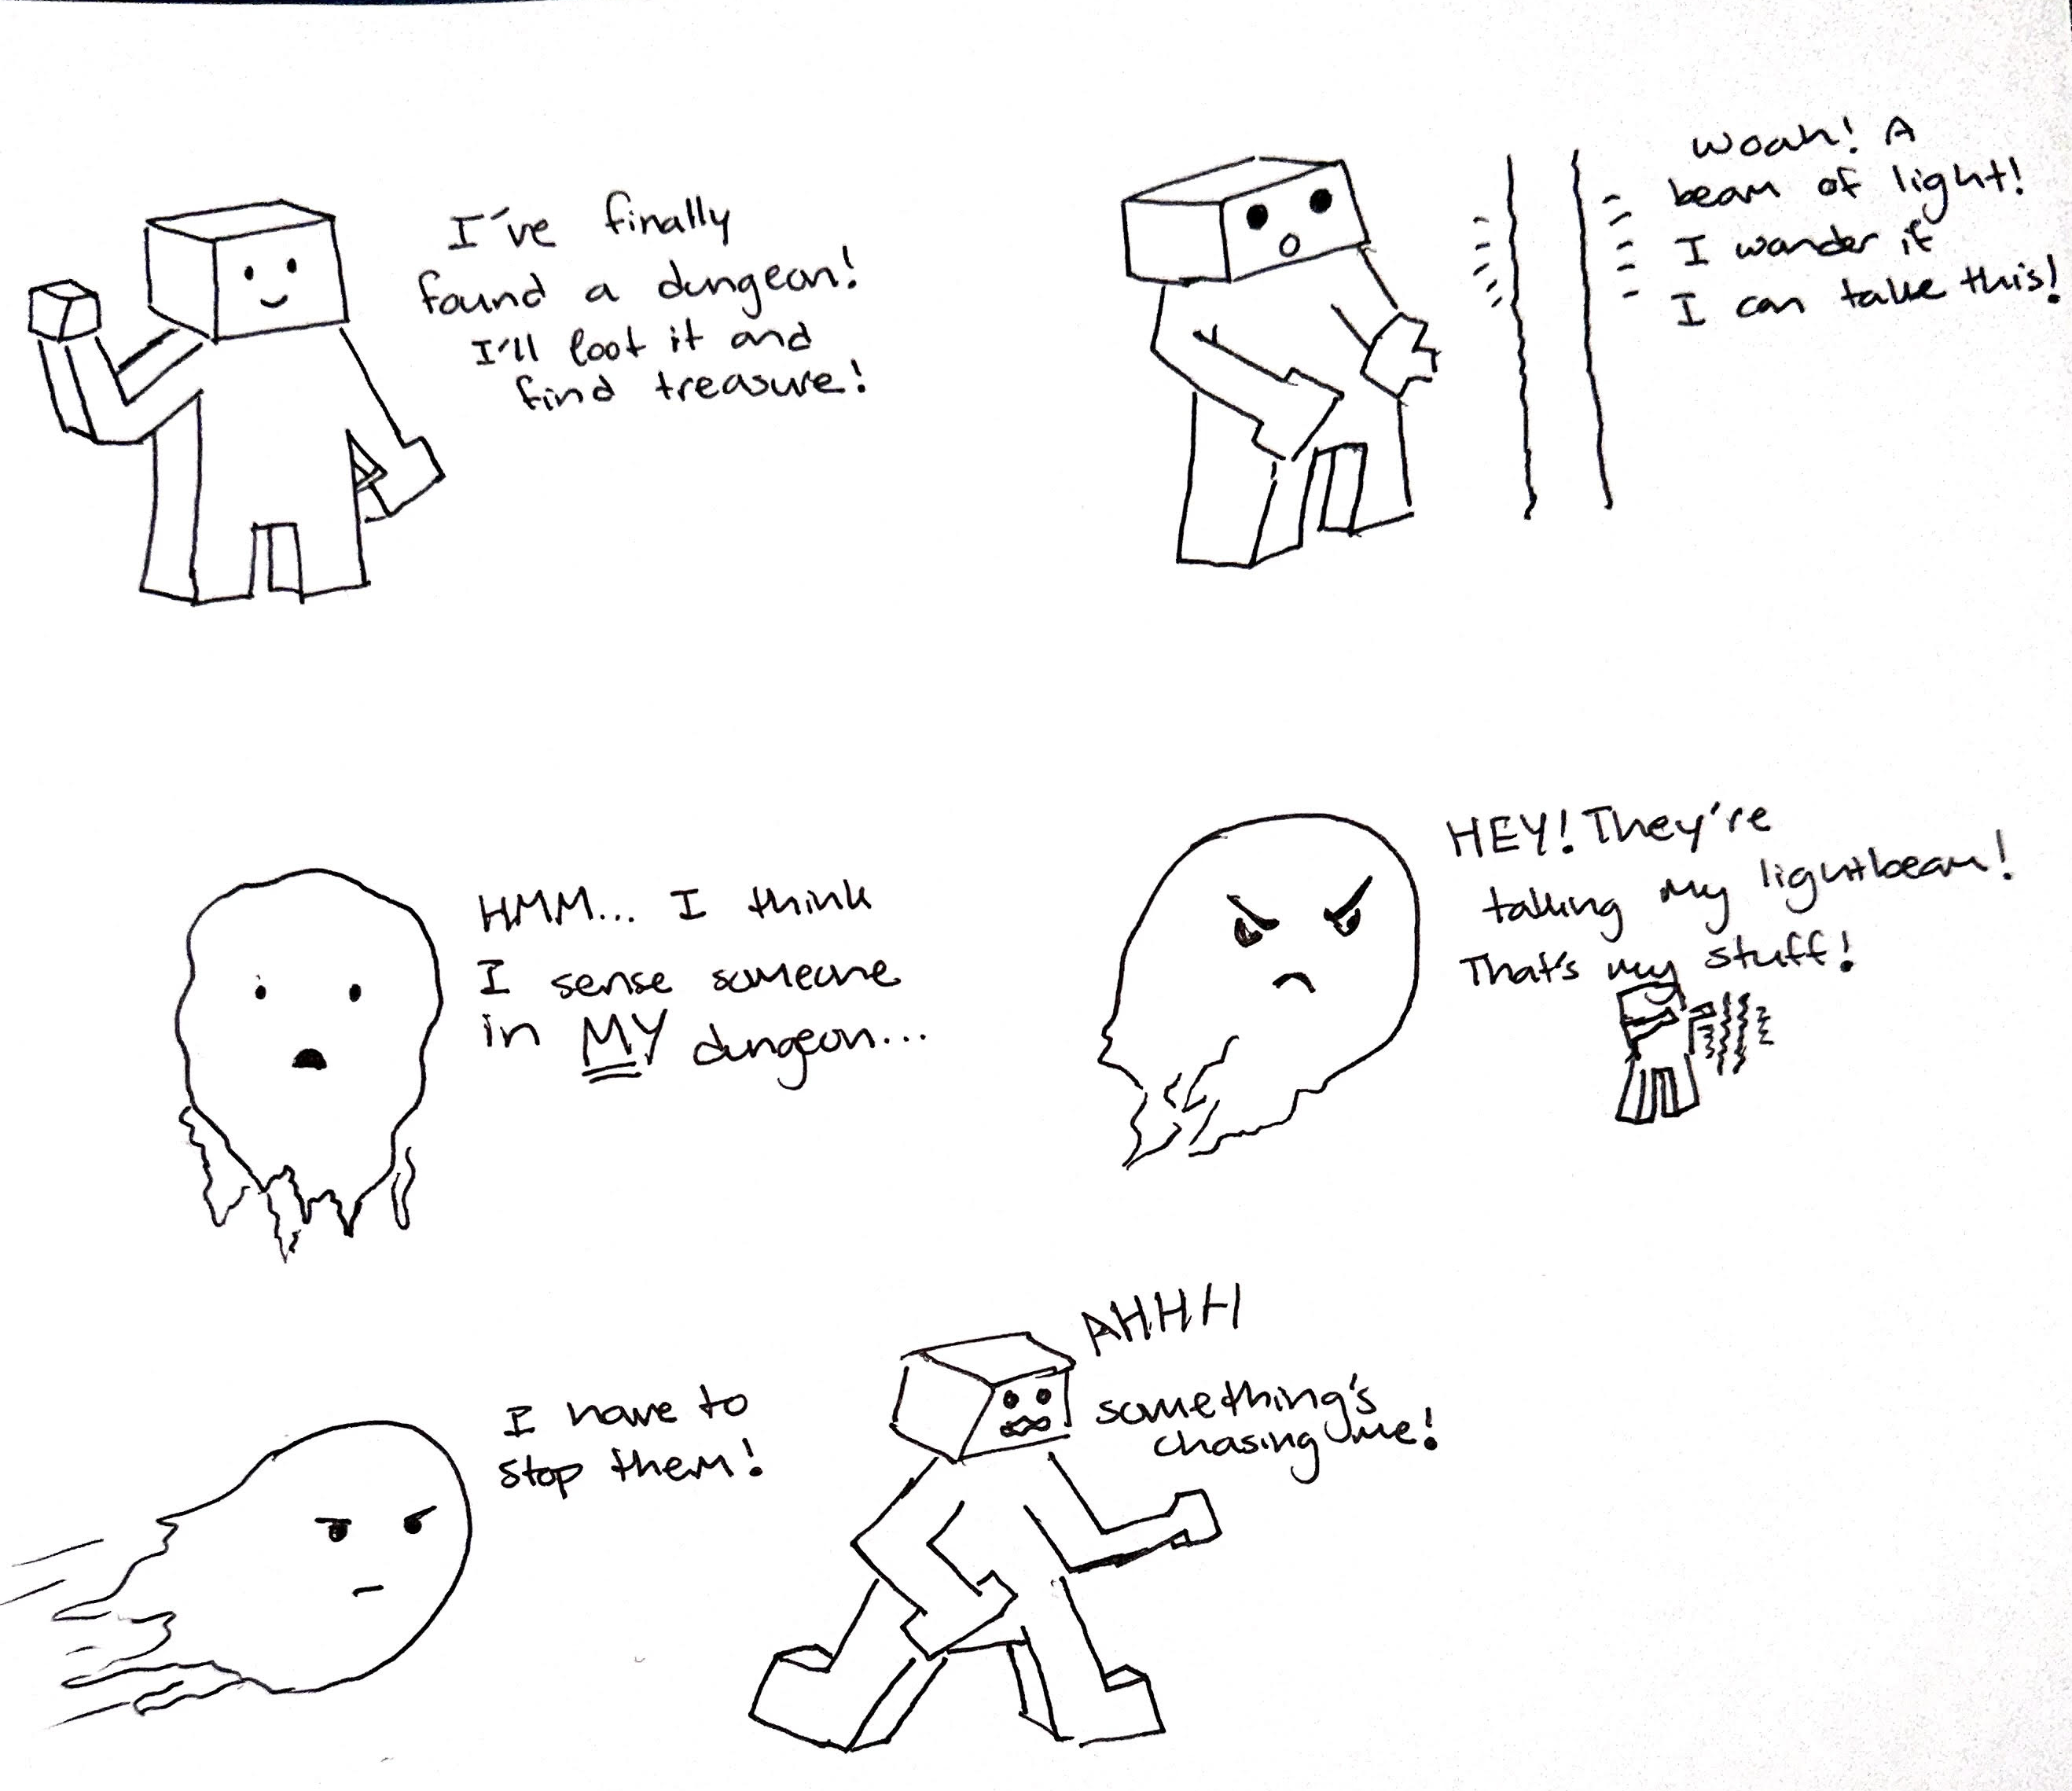 I've finally
found a dungeon!
I'll loot it and
find treasure!
Woah! A
beam of light!
I wonder if
I can take this!
HMM... I think
I sense someone
in MY dungeon...
HEY! They're
taking my lightbeam!
That's my stuff!
I have to
stop them!
AHHH
something's
chasing me!